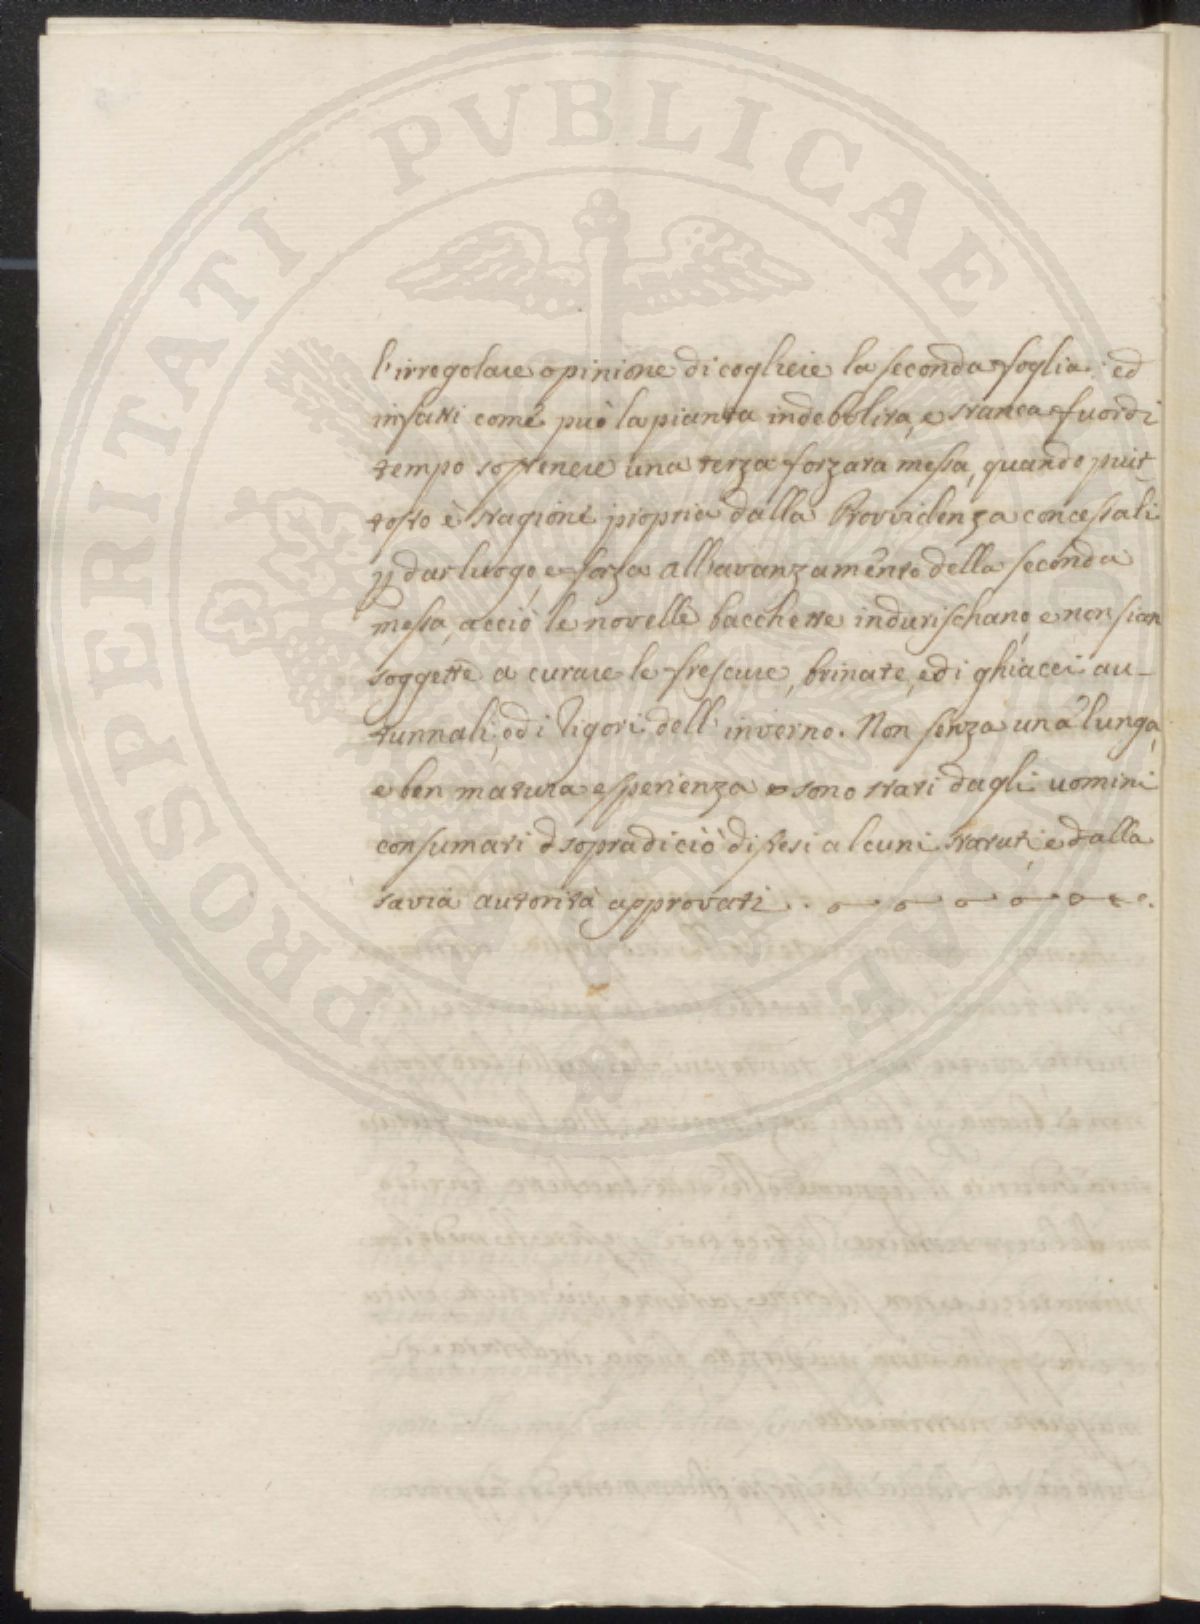 PROSPERITATI PUBLICAE AUGENDAE
l'irregolare opinione di cogliere la seconda foglia: ed
infatti come può la pianta indebolita, e stanca fuor di
tempo sostenere una terza forzata messa, quando piut
tosto è stagione propria dalla Providenza concessali
p dar luogo, e forza all'avanzamento della seconda
messa, acciò le novelle bacchette indurischano, e non sian
soggette a curare le frescure, brinate, ed i ghiacci au-
tunnali, ed i rigori dell' inverno. Non senza una lunga,
e ben matura esperienza sono stati dagli uomini
consumati sopra di ciò distesi alcuni statuti, e dalla
savia autorità approvati.